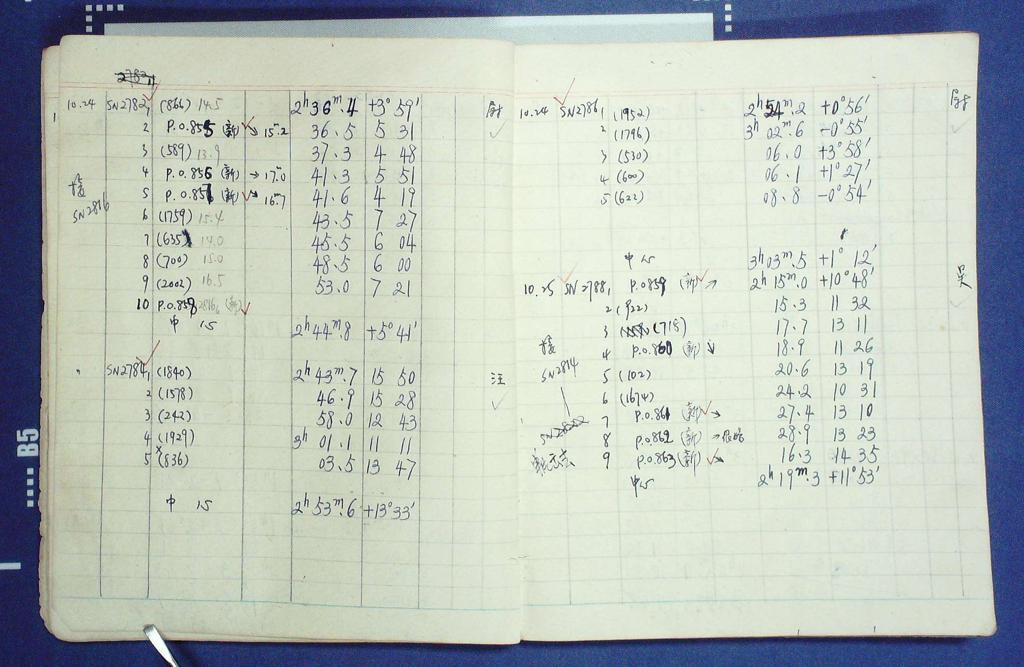 10.24 SN2782 1 (866) 14.5 2h 36m.4 +3° 59'
2 P.O.855 (新) → 15.2 36.5 5 31
3 (589) 13.9 37.3 4 48
4 P.O.856 (新) → 17.0 41.3 5 51
接 5 P.O.857 (新) → 16.7 41.6 4 19
SN2816 6 (1759) 15.4 43.5 7 27
7 (635) 14.0 45.5 6 04
8 (700) 15.0 48.5 6 00
9 (2002) 16.5 53.0 7 21
10 P.O.858 (新)
中 15 2h 44m.8 +5° 41'
SN2784 1 (1840) 2h 43m.7 15 50 汪
2 (1578) 46.9 15 28
3 (242) 58.0 12 43
4 (1929) 3h 01.1 11 11
5 (836) 03.5 13 47
中 15 2h 53m.6 +13° 33'
10.24 SN2786 1 (1952) 2h 54m.2 +0° 56'
2 (1796) 3h 02m.6 -0° 55'
3 (530) 06.0 +3° 58'
4 (600) 06.1 +1° 27'
5 (622) 08.8 -0° 54'
中 15 3h 03m.5 +1° 12'
10.25 SN2788 1 P.O.859 (新) → 2h 15m.0 +10° 48' 吴
2 (922) 15.3 11 32
3 (718) 17.7 13 11
接 4 P.O.860 (新) 18.9 11 26
SN2814 5 (102) 20.6 13 19
6 (1674) 24.2 10 31
7 P.O.861 (新) → 27.4 13 10
8 P.O.862 (新) → 28.9 13 23
9 P.O.863 (新) → 16.3 14 35
中 15 2h 19m.3 +11° 53'
B5